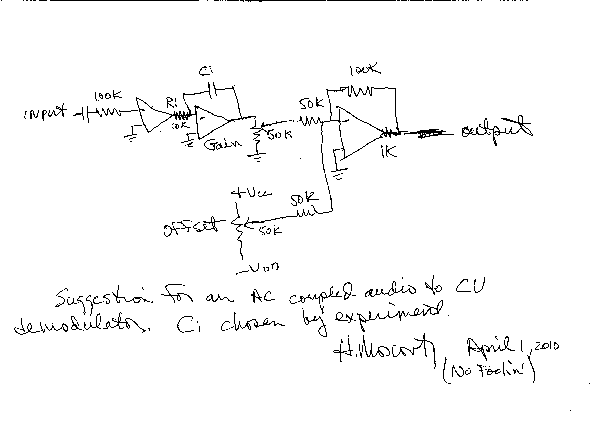 Ci
100K
100K
input
Ri
10K
50K
Gain
50K
1K
output
+Vcc
50K
offset
50K
-VDD
Suggestion for an AC coupled audio to CV
demodulator. Ci chosen by experiment.
H. Moscovitz April 1, 2010
(No Foolin')